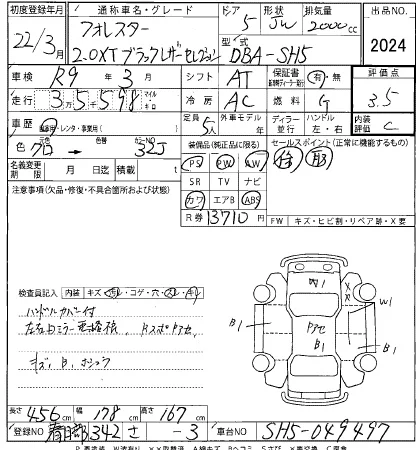 初度登録年月 通称車名・グレード ドア 形状 排気量 出品NO.
22/3月 フォレスター 5 JW 2000cc
2.0XT ブラックレザーセレクション 型式 DBA-SH5 2024
車検 R9年3月 シフト AT 保証書 有・無 評価点
走行 35598 マイル キロ 冷房 AC 燃料 G 3.5
車歴 自家用・レンタ・事業用( ) 定員 5人 外車モデル 年 ディーラー 並行 ハンドル 左・右 内装評価 C
元色 クロ → 色替 カラーNO 32J 装備品(純正品に限る) セールスポイント(正常に機能するもの)
PS PW AW
名義変更期限 月 日迄 積載 t SR TV ナビ
注意事項(欠品・修復・不具合箇所および状態) カワ エアB ABS
R券 13710円 FW キズ・ヒビ割・リペア跡・X要
検査員記入 内装 キズ・汚れ・コゲ・穴・スレ・キレ
ハンドルカバー付
キズ、B、
W1
XX
W1
B1
B1
B1
長さ 456cm 幅 178cm 高さ 167cm
登録NO 春日部 342 さ -3 車台NO SH5-049497